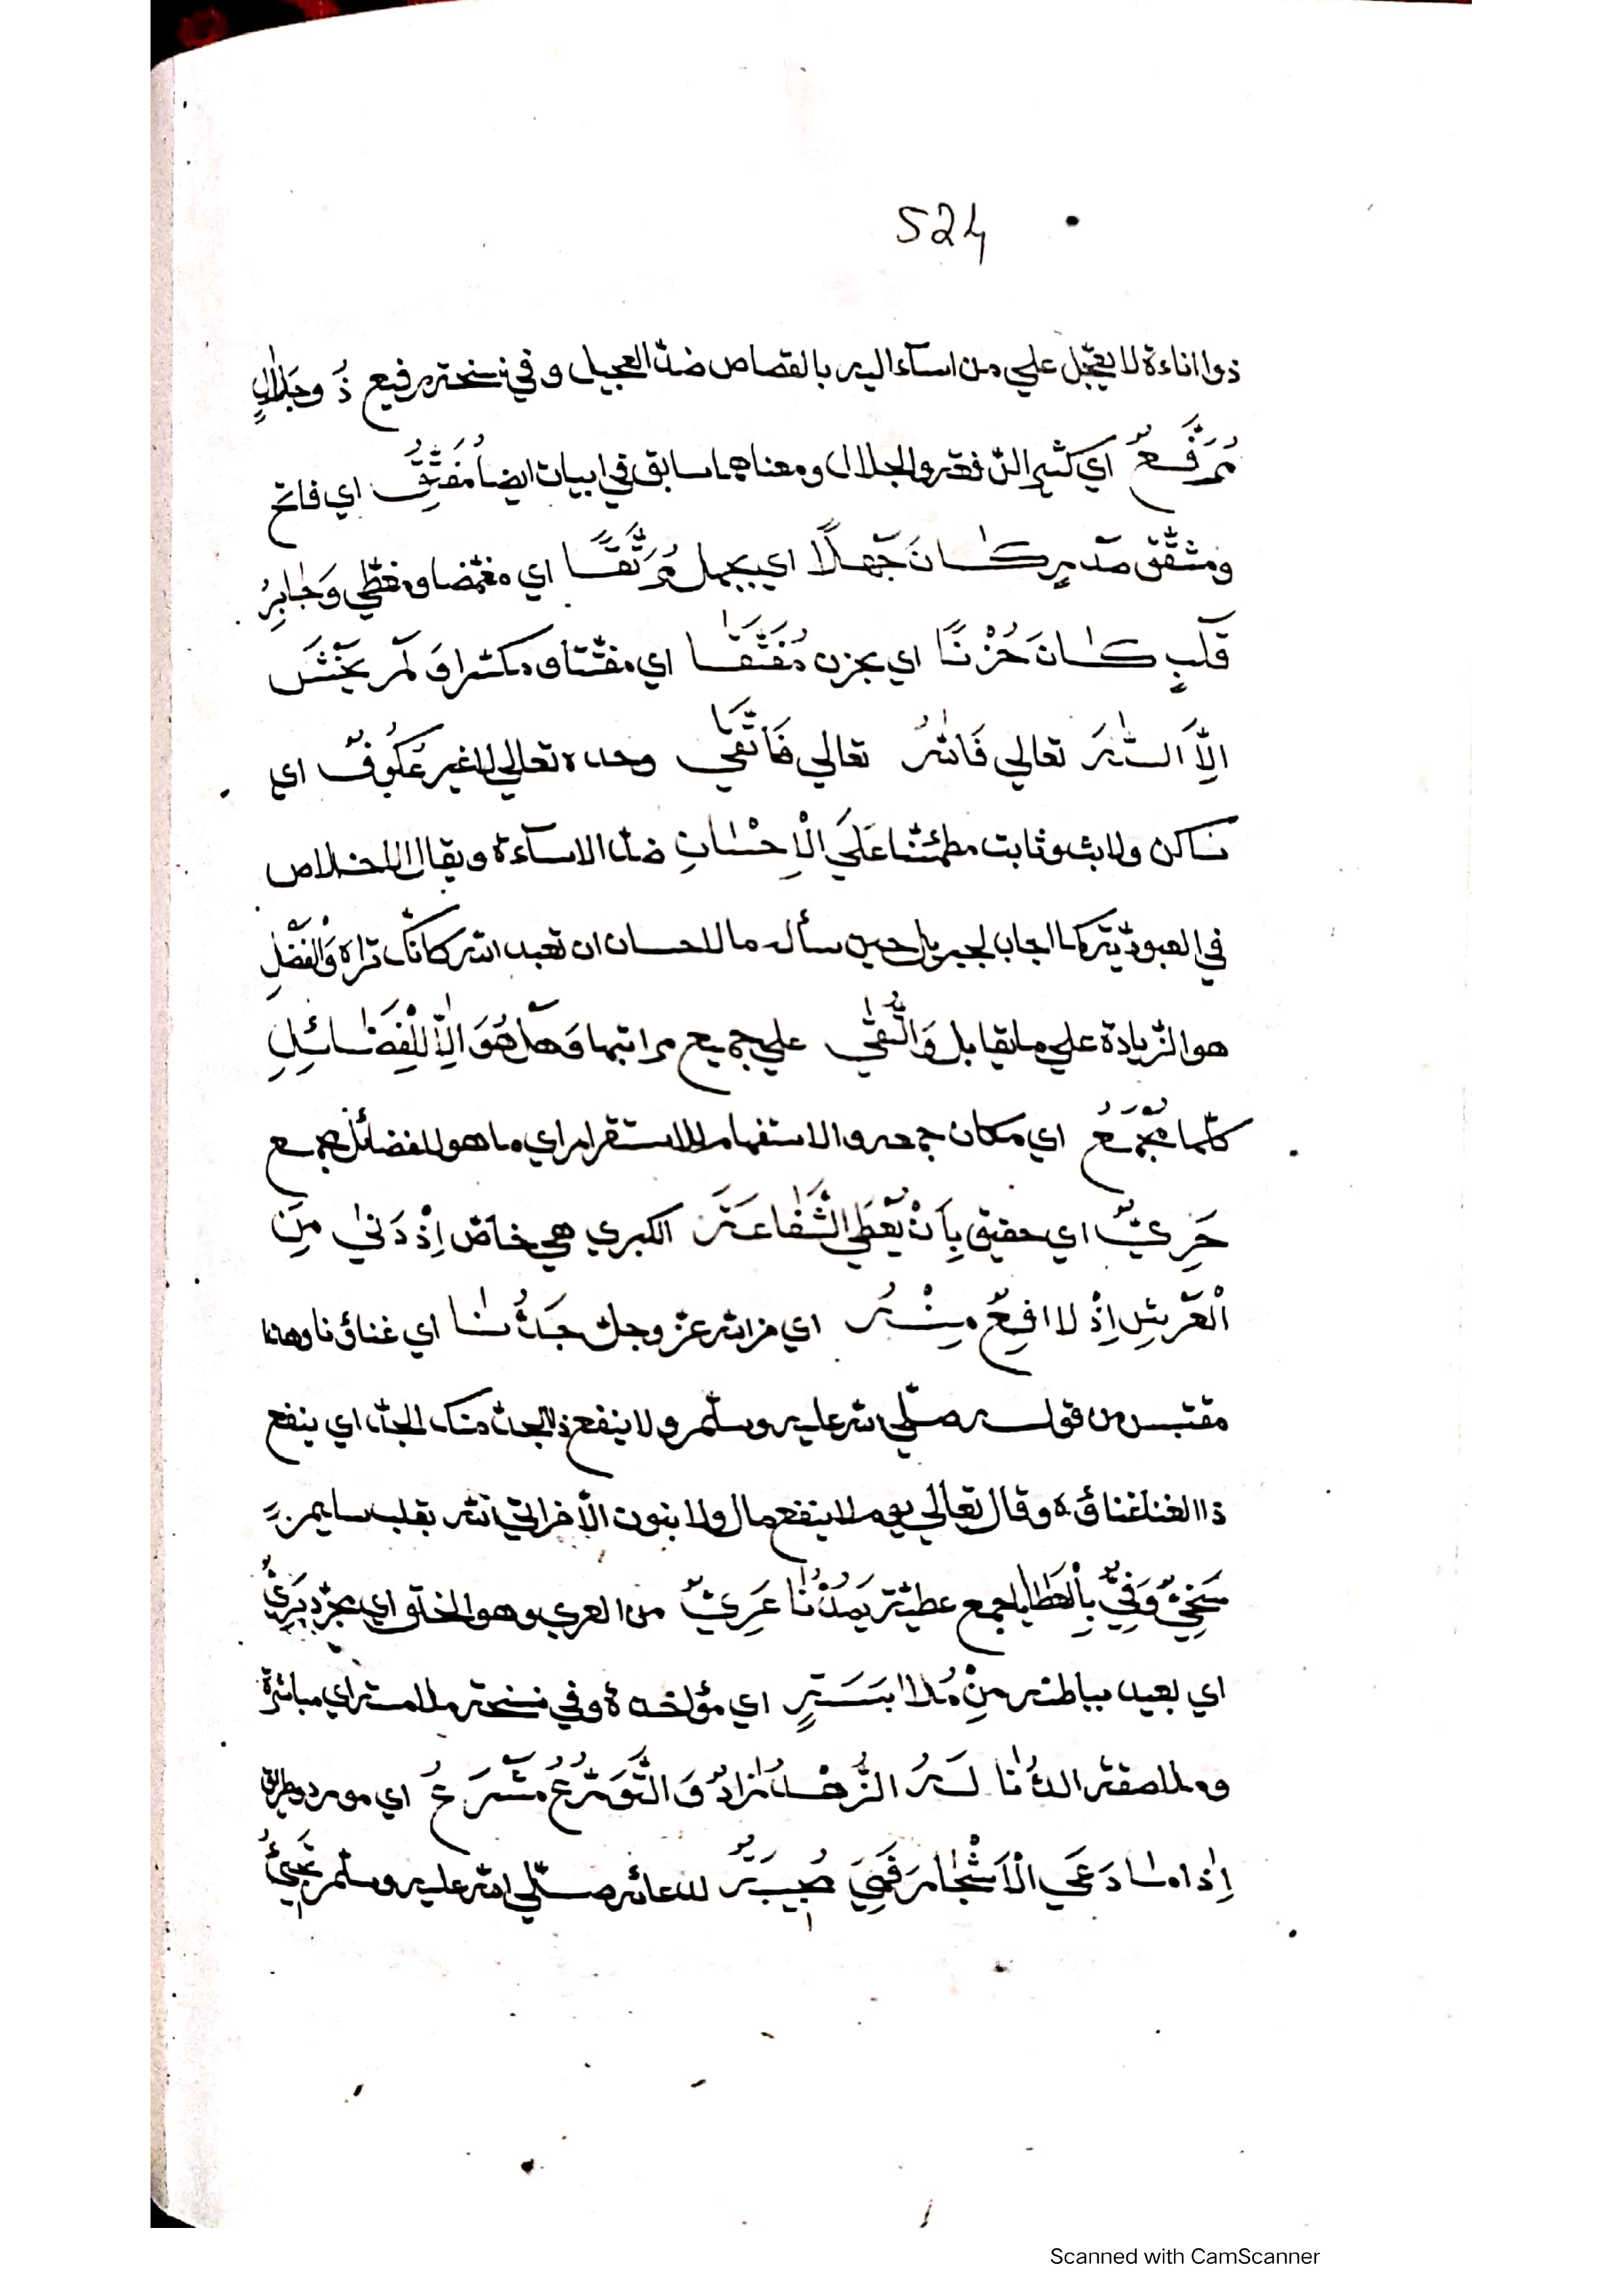 524
ذوا اناءة لا يعجّل علي من اساء اليه بالقصاص ضدّ العجيل و في نسخة رفيع ذُو جَلَالٍ
مُرَفَّعٌ اي كثير الرّفعة والجلال ومعناهما سابق في ابيات ايضا مُفَتِّقُ اي فاتح
ومشقّق صَدْرٍ كَانَ جَهْلًا اي بجهل مُرَتَّقًا اي مغمّضا ومغطّي وَجَابِرُ
قَلْبٍ كَانَ حُزْنًا اي بحزن مُفَتَّقَا اي مفتّتا و مكسّرا وَ لَمْ يَخْشَ
اِلَّا اللّٰهَ تعالي فَاللّٰهُ تعالي فَاتَّقَي وحده تعالي لا غير عَكُوفٌ اي
ساكن ولابث وثابت مطمئنّا عَلَي الْاِحْسَانِ ضدّ الاساءة ويقال الاخلاص
في العبوديّة كما اجاب لجبريل حين سأله ما الاحسان ان تعبد الله كانّك تراه وَالْفَضْلِ
هو الزّيادة علي ما تقابل وَالتُّقَي علي جميع مراتبها وَهَلْ هُوَ اِلَّا لِلْفَضَائِلِ
كلّها مَجْمَعُ اي مكان جمعه والاستفهام للاستقرار اي ما هو الفضائل مجمع
حَرِيٌّ اي حقيق بِاَنْ يُعْطَي الشَّفَاعَةَ الكبري هي خاصّ اِذْ دَنٰي مِنَ
الْعَرْشِ اِذْ لا نافِعٌ مِنْهُ اي من الله عزّ وجلّ جَدُّنَا اي غناؤنا وهذا
مقتبس من قوله صلّي الله عليه وسلّم ولا ينفع ذا الجدّ منك الجدّ اي ينفع
ذا الغنا غناؤه وقال تعالي يوم لا ينفع مال ولا بنون الّا من اتي الله بقلب سليم
سَخِيٌّ وَفِيٌّ بِالْعَطَايا جمع عطيّة يَمُدُّنَا عَرِيٌّ من العري وهو الخلق اي مجرّد بَرِئٌ
اي بعيد بباطنه مِنْ مُلَابَسَةِ اي مؤاخذة و في نسخة ملامسة اي مباشرة
وملاصقة الدُّنَا لَهُ الزُّهْدُ زَادٌ وَ التَّوَرُّعُ مَشْرَعُ اي مورد وطريق
اِذَا مَا دَعَي الْاَشْجَارَ فَهْيَ مُجِيبَةٌ لدعائه صلّي الله عليه وسلّم تَجِيئُ
Scanned with CamScanner